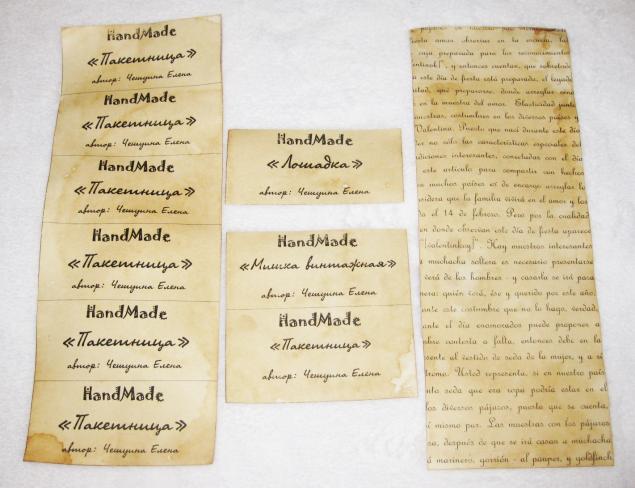 HandMade
«Пакетница»
автор: Чешуина Елена
HandMade
«Пакетница»
автор: Чешуина Елена
HandMade
«Пакетница»
автор: Чешуина Елена
HandMade
«Пакетница»
автор: Чешуина Елена
HandMade
«Пакетница»
автор: Чешуина Елена
HandMade
«Пакетница»
автор: Чешуина Елена
HandMade
«Лошадка»
автор: Чешуина Елена
HandMade
«Мишка винтажная»
автор: Чешуина Елена
HandMade
«Пакетница»
автор: Чешуина Елена
amor observar en la escuela, la
preparada para los reconocimientos
y entonces cuentan, que
este día de fiesta está preparada, el legado
que prepararse, donde arreglar
en la muestra del amor. Elasticidad junto
muestras, costumbres en los diversos países y
Valentina. Puesto que nací durante este día
no sólo las características especiales del
diciones interesantes, conectadas con el día
este artículo para compartir con hechos
muchos países es de encargo arreglar la
sidera que la familia vivirá en el amor y las
el 14 de febrero. Pero por la cualidad
en donde observan este día de fiesta aparece
("valentinkoy)". Hay muestras interesantes
muchacha soltera es necesario presentarse
verá de los hombres - y casarla se irá para
nera: quién será, ése y querido por este año.
ante este costumbre que no lo haga, verdad,
ante el día enamorados puede proponer a
contesta a falta, entonces debe en la
sente al vestido de seda de la mujer, y a sí
tremo. Usted representa, si en nuestro país
seda que era ropa podría estar en el
los diversos pájaros, puesto que se cuenta,
mismo par. Las muestras con los pájaros
sa, después de que se irá casar a muchacha
marinero, gorrión - al pauper, y goldfinch